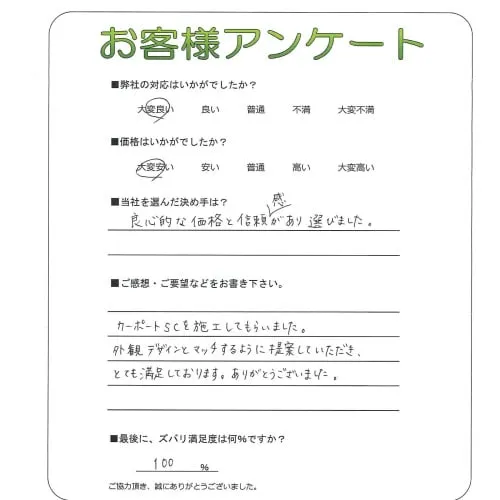 お客様アンケート
■弊社の対応はいかがでしたか？
大変良い 良い 普通 不満 大変不満
■価格はいかがでしたか？
大変安い 安い 普通 高い 大変高い
■当社を選んだ決め手は？
良心的な価格と信頼感があり選びました。
■ご感想・ご要望などをお書き下さい。
カーポートSCを施工してもらいました。
外観デザインとマッチするように提案していただき、
とても満足しております。ありがとうございました。
■最後に、ズバリ満足度は何%ですか？
100 %
ご協力頂き、誠にありがとうございました。